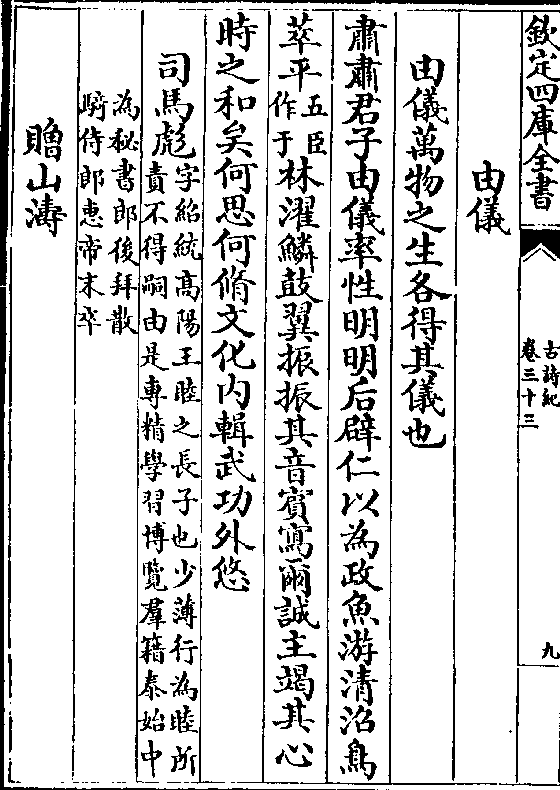 欽定四庫全書
古詩紀
卷三十三
九
由儀
由儀萬物之生各得其儀也
肅肅君子由儀率性明明后辟仁以為政魚游清沼鳥
萃平五臣作于林濯鱗鼓翼振振其音賓寫爾誠主竭其心
時之和矣何思何脩文化内輯武功外悠
司馬彪字紹統髙陽王睦之長子也少薄行為睦所
責不得嗣由是專精學習博覽羣籍泰始中
為秘書郎後拜散
騎侍郎惠帝末卒
贈山濤